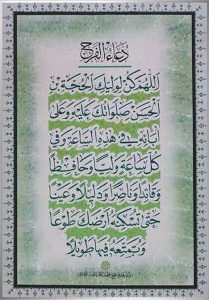 دعاء الفرج
اللهم كن لوليك الحجة بن
الحسن صلواتك عليه وعلى
آبائه في هذه الساعة وفي
كل ساعة وليا وحافظا
وقائدا وناصرا ودليلا وعينا
حتى تسكنه أرضك طوعا
وتمتعه فيها طويلا